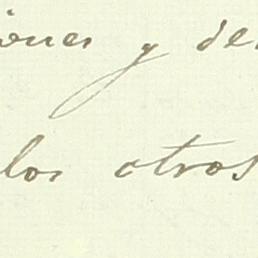 iones y de
los otros